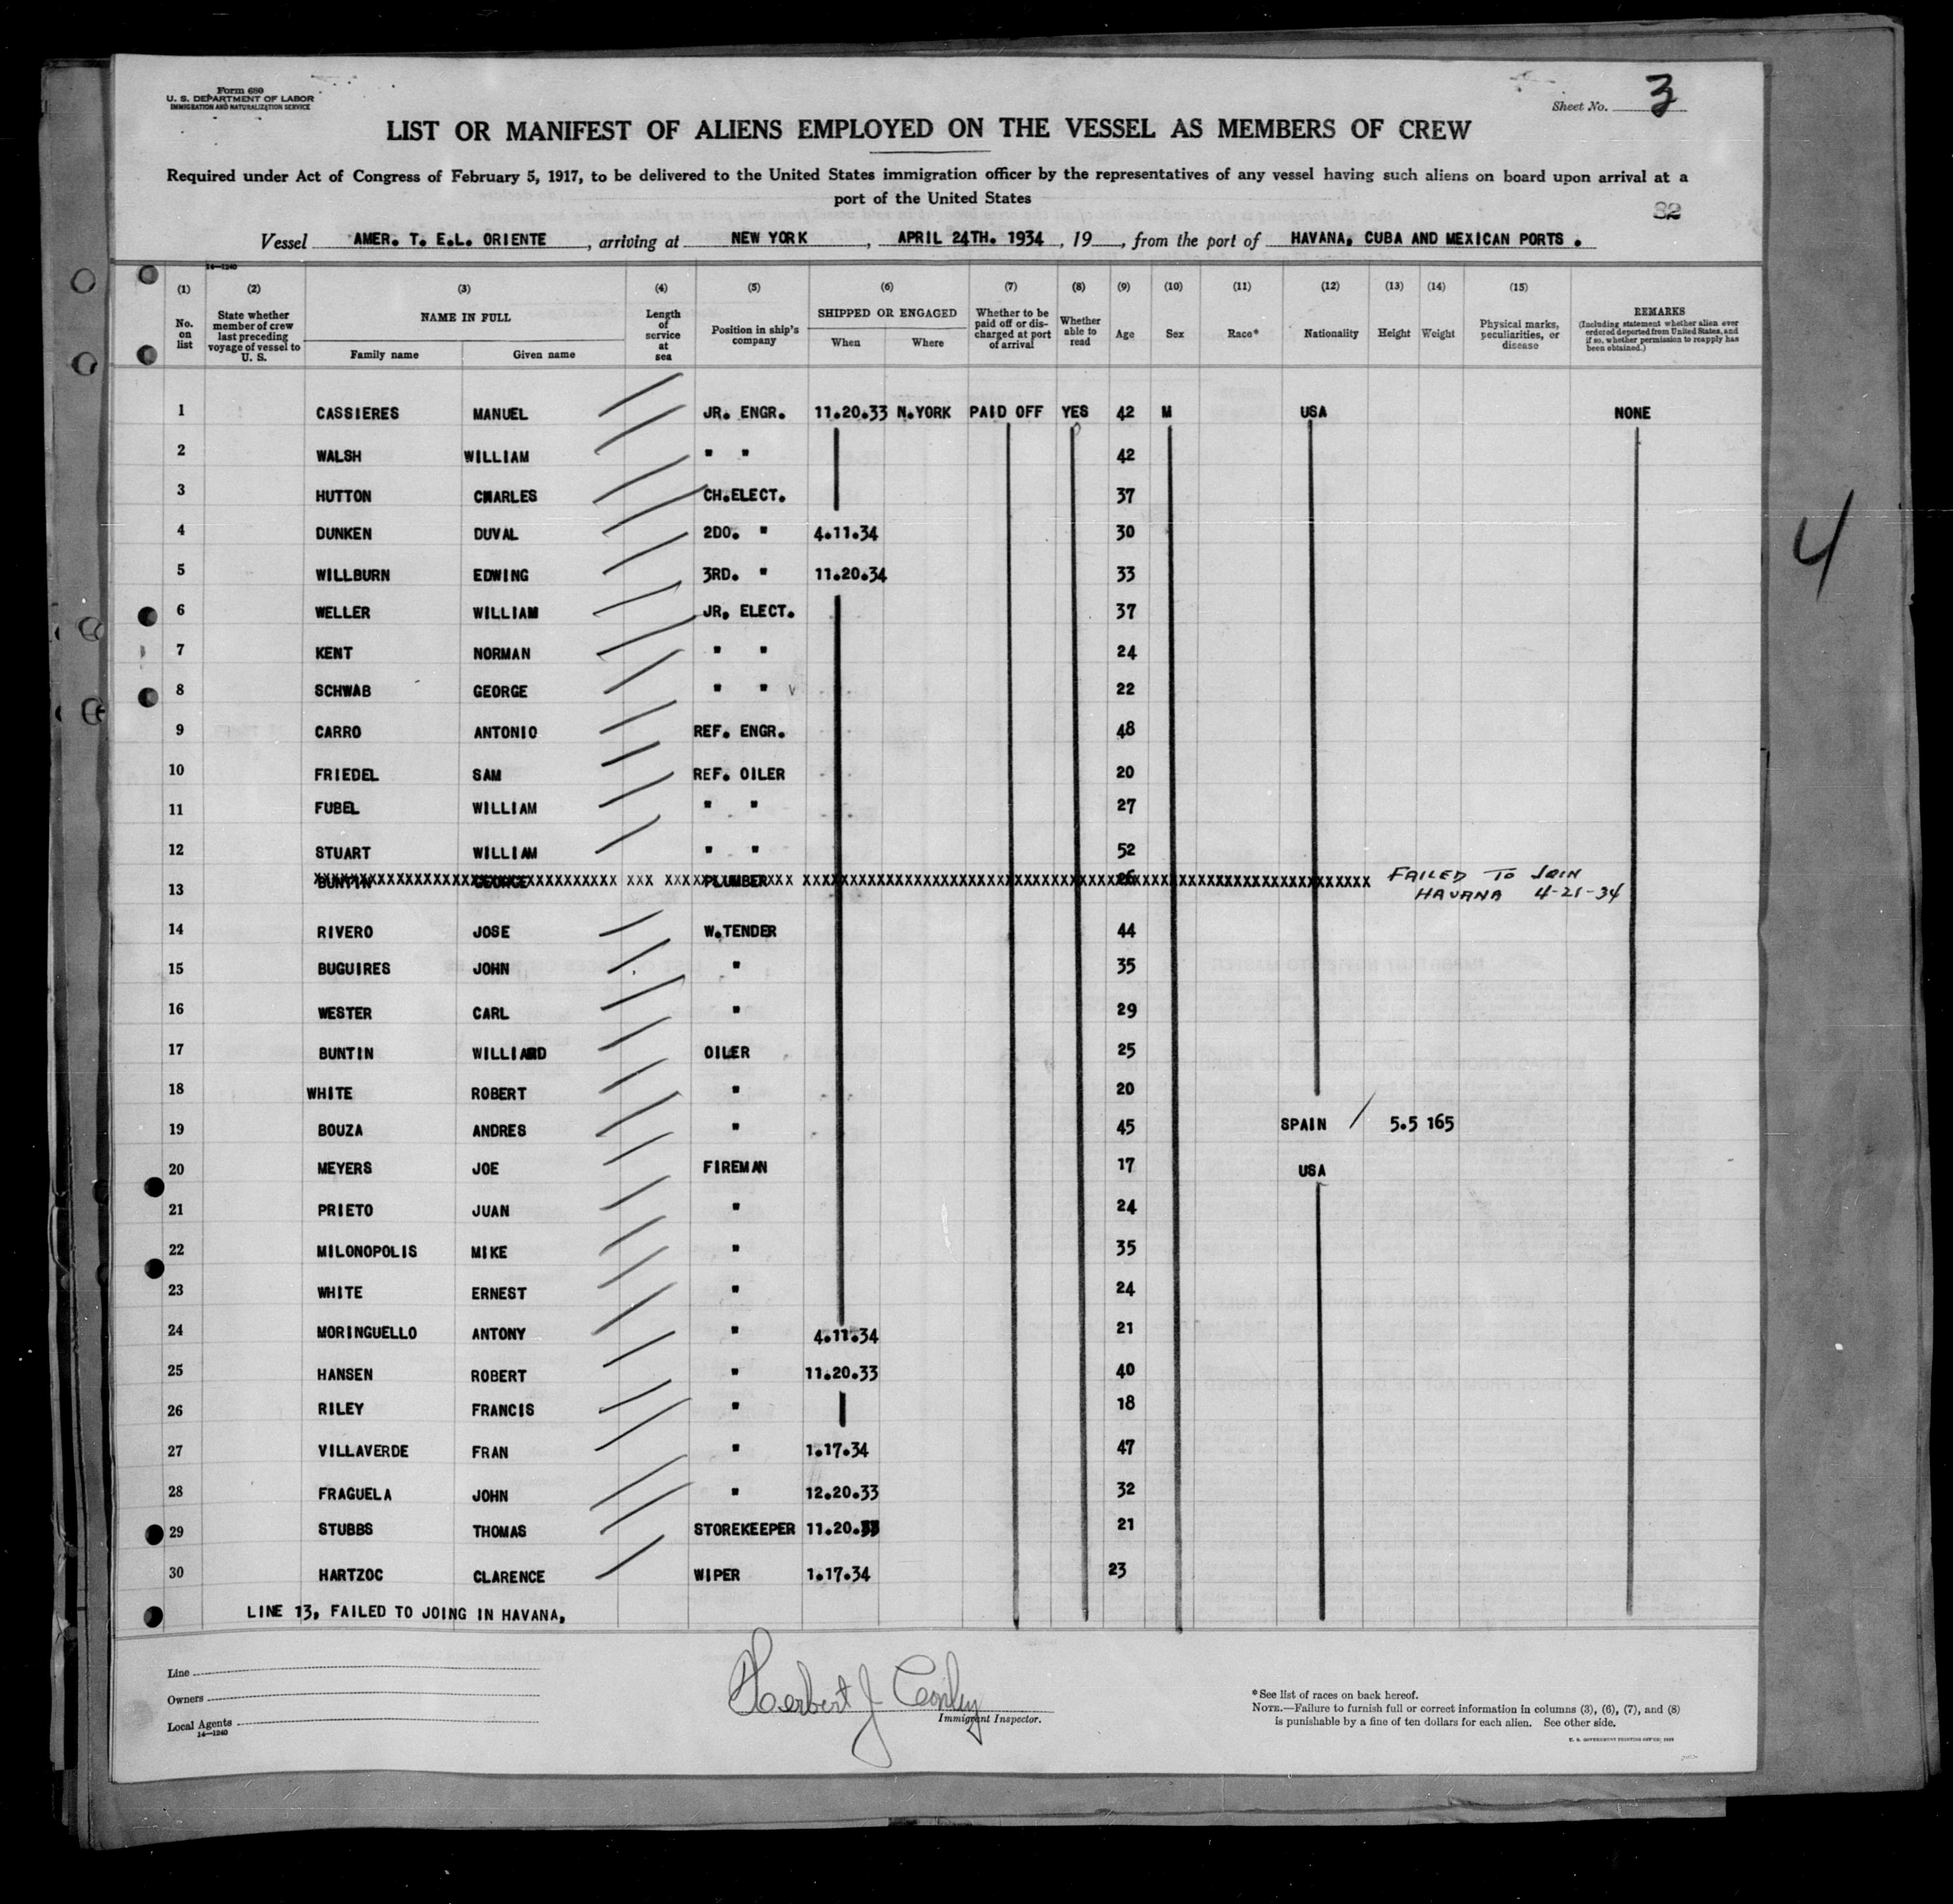 Form 680
U. S. DEPARTMENT OF LABOR
IMMIGRATION AND NATURALIZATION SERVICE
Sheet No. 3
LIST OR MANIFEST OF ALIENS EMPLOYED ON THE VESSEL AS MEMBERS OF CREW
Required under Act of Congress of February 5, 1917, to be delivered to the United States immigration officer by the representatives of any vessel having such aliens on board upon arrival at a
port of the United States
82
Vessel AMER. T. E.L. ORIENTE, arriving at NEW YORK, APRIL 24TH. 1934, 19 , from the port of HAVANA, CUBA AND MEXICAN PORTS .
14—1240
(1) (2) (3) (4) (5) (6) (7) (8) (9) (10) (11) (12) (13) (14) (15)
No. on list
State whether member of crew last preceding voyage of vessel to U. S.
NAME IN FULL
Family name Given name
Length of service at sea
Position in ship's company
SHIPPED OR ENGAGED
When Where
Whether to be paid off or discharged at port of arrival
Whether able to read
Age
Sex
Race*
Nationality
Height
Weight
Physical marks, peculiarities, or disease
REMARKS
(Including statement whether alien ever ordered deported from United States, and if so, whether permission to reapply has been obtained.)
1 CASSIERES MANUEL JR. ENGR. 11.20.33 N.YORK PAID OFF YES 42 M USA NONE
2 WALSH WILLIAM " " 42
3 HUTTON CHARLES CH.ELECT. 37
4 DUNKEN DUVAL 2DO. " 4.11.34 30
5 WILLBURN EDWING 3RD. " 11.20.34 33
6 WELLER WILLIAM JR, ELECT. 37
7 KENT NORMAN " " 24
8 SCHWAB GEORGE " " 22
9 CARRO ANTONIO REF. ENGR. 48
10 FRIEDEL SAM REF. OILER 20
11 FUBEL WILLIAM " " 27
12 STUART WILLIAM " " 52
13 BUNTIN GEORGE PLUMBER 26 FAILED TO JOIN
HAVANA 4-21-34
14 RIVERO JOSE W.TENDER 44
15 BUGUIRES JOHN " 35
16 WESTER CARL " 29
17 BUNTIN WILLIARD OILER 25
18 WHITE ROBERT " 20
19 BOUZA ANDRES " 45 SPAIN / 5.5 165
20 MEYERS JOE FIREMAN 17 USA
21 PRIETO JUAN " 24
22 MILONOPOLIS MIKE " 35
23 WHITE ERNEST " 24
24 MORINGUELLO ANTONY " 4.11.34 21
25 HANSEN ROBERT " 11.20.33 40
26 RILEY FRANCIS " 18
27 VILLAVERDE FRAN " 1.17.34 47
28 FRAGUELA JOHN " 12.20.33 32
29 STUBBS THOMAS STOREKEEPER 11.20.33 21
30 HARTZOC CLARENCE WIPER 1.17.34 23
LINE 13, FAILED TO JOING IN HAVANA,
4
Line
Owners
Local Agents
14—1240
Herbert J Conley
Immigrant Inspector.
*See list of races on back hereof.
NOTE.—Failure to furnish full or correct information in columns (3), (6), (7), and (8)
is punishable by a fine of ten dollars for each alien. See other side.